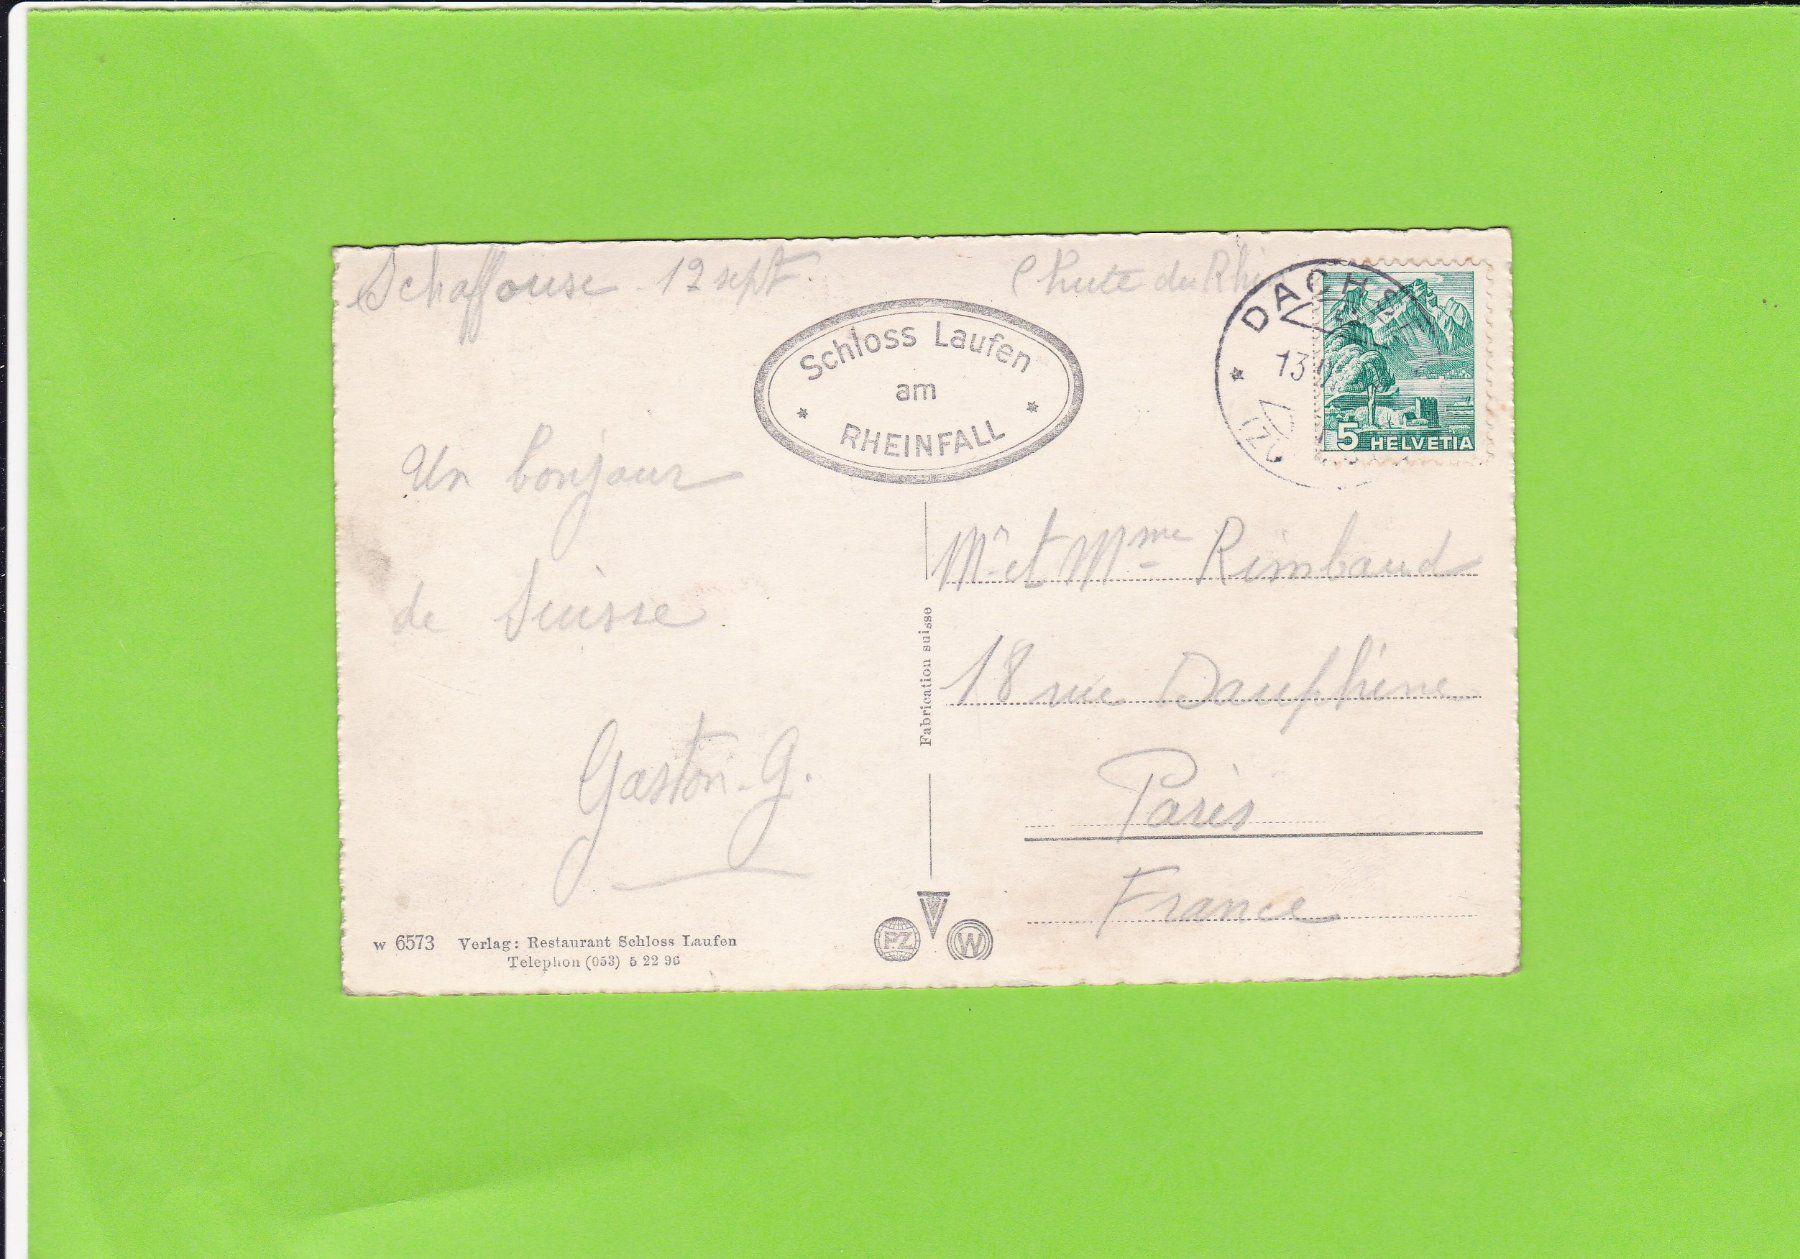 Schaffouse 12 sept.
Chute du Rhin
Schloss Laufen
am
RHEINFALL
DACHS
13
5 HELVETIA
Un bonjour
de Suisse
Gaston. G.
Mr et Mme Rimbaud
18 rue Dauphine
Paris
France
Fabrication suisse
W 6573 Verlag: Restaurant Schloss Laufen
Telephon (053) 5 22 96
PZ
W